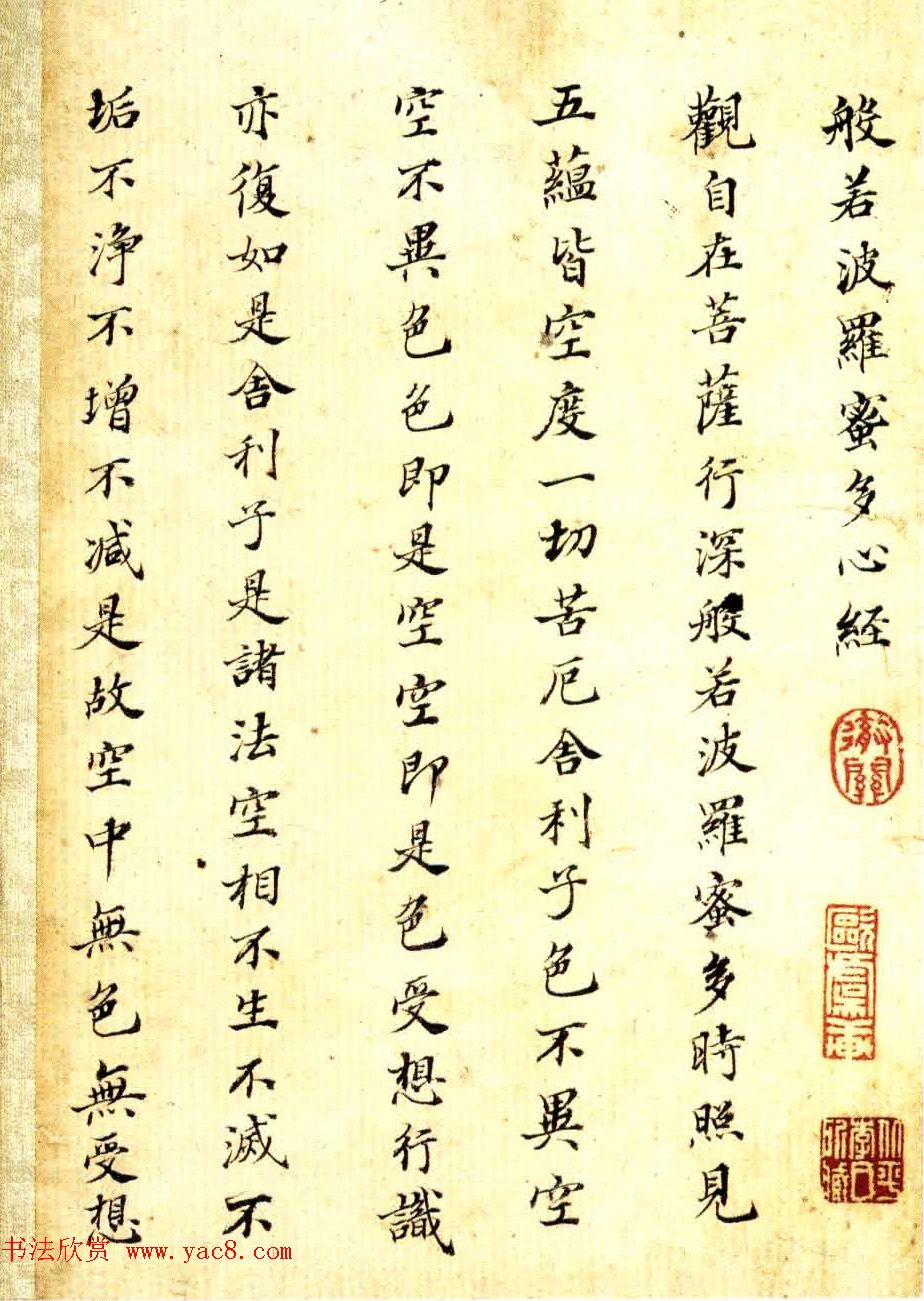 般若波羅蜜多心経
觀自在菩薩行深般若波羅蜜多時照見
五蘊皆空度一切苦厄舎利子色不異空
空不異色色即是空空即是色受想行識
亦復如是舎利子是諸法空相不生不滅不
垢不浄不增不减是故空中無色無受想
书法欣赏 www.yac8.com